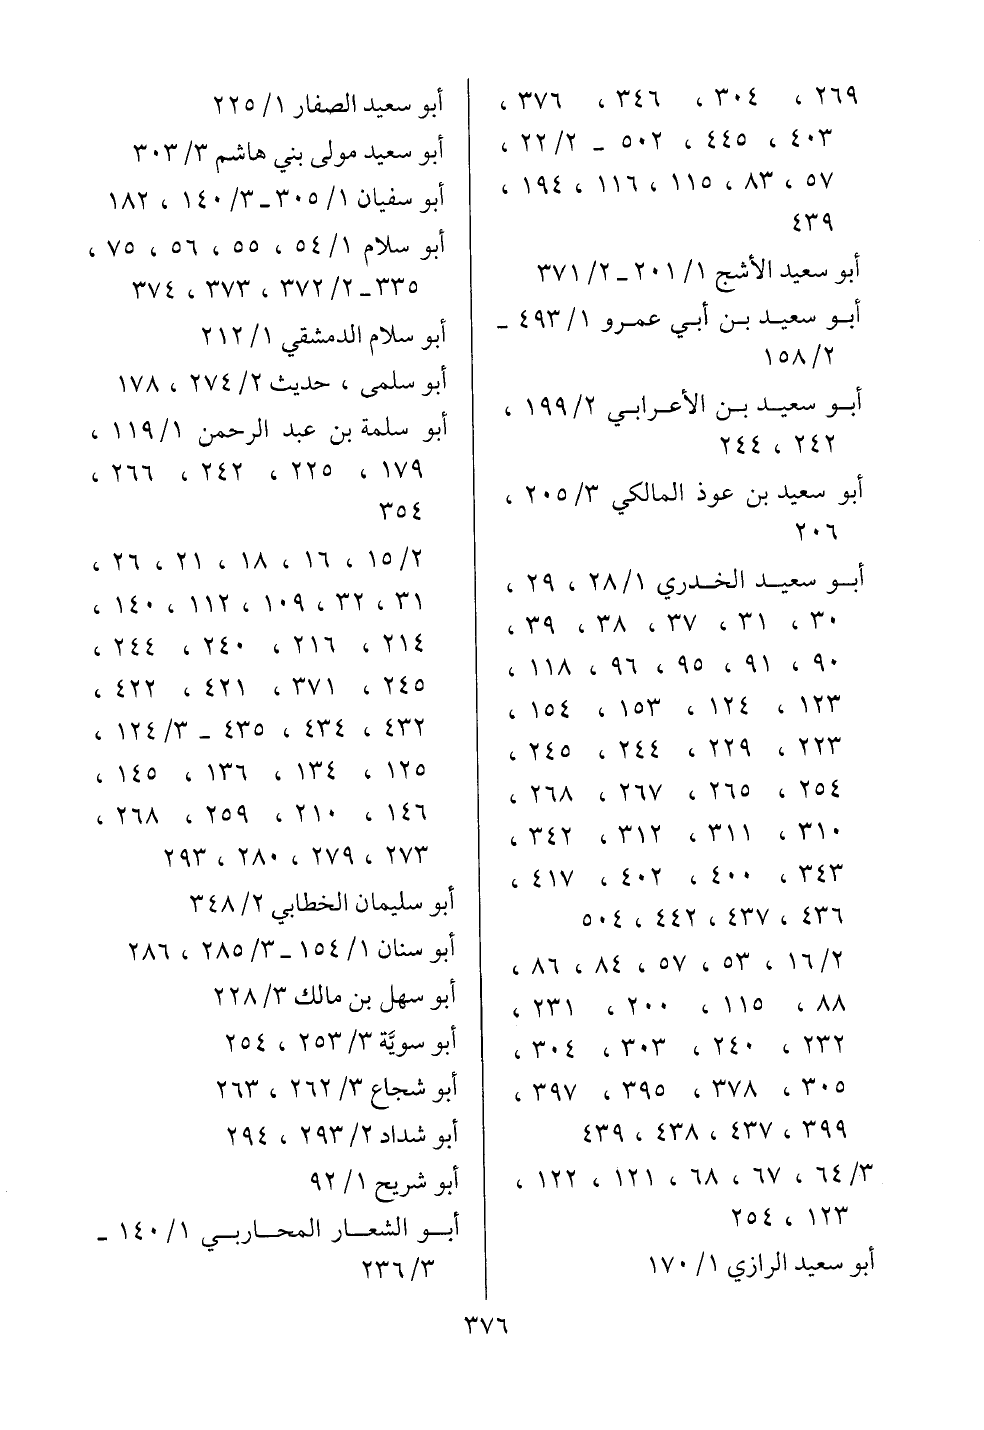 ٢٦٩ ، ٣٠٤ ، ٣٤٦ ، ٣٧٦ ،
٤٠٣ ، ٤٤٥ ، ٥٠٢ ـ ٢/ ٢٢ ،
٥٧ ، ٨٣ ، ١١٥ ، ١١٦ ، ١٩٤ ،
٤٣٩
أبو سعيد الأشج ١/ ٢٠١ ـ ٢/ ٣٧١
أبو سعيد بن أبي عمرو ١/ ٤٩٣ ـ
٢/ ١٥٨
أبو سعيد بن الأعرابي ٢/ ١٩٩ ،
٢٤٢ ، ٢٤٤
أبو سعيد بن عوذ المالكي ٣/ ٢٠٥ ،
٢٠٦
أبو سعيد الخدري ١/ ٢٨ ، ٢٩ ،
٣٠ ، ٣١ ، ٣٧ ، ٣٨ ، ٣٩ ،
٩٠ ، ٩١ ، ٩٥ ، ٩٦ ، ١١٨ ،
١٢٣ ، ١٢٤ ، ١٥٣ ، ١٥٤ ،
٢٢٣ ، ٢٢٩ ، ٢٤٤ ، ٢٤٥ ،
٢٥٤ ، ٢٦٥ ، ٢٦٧ ، ٢٦٨ ،
٣١٠ ، ٣١١ ، ٣١٢ ، ٣٤٢ ،
٣٤٣ ، ٤٠٠ ، ٤٠٢ ، ٤١٧ ،
٤٣٦ ، ٤٣٧ ، ٤٤٢ ، ٥٠٤
٢/ ١٦ ، ٥٣ ، ٥٧ ، ٨٤ ، ٨٦ ،
٨٨ ، ١١٥ ، ٢٠٠ ، ٢٣١ ،
٢٣٢ ، ٢٤٠ ، ٣٠٣ ، ٣٠٤ ،
٣٠٥ ، ٣٧٨ ، ٣٩٥ ، ٣٩٧ ،
٣٩٩ ، ٤٣٧ ، ٤٣٨ ، ٤٣٩
٣/ ٦٤ ، ٦٧ ، ٦٨ ، ١٢١ ، ١٢٢ ،
١٢٣ ، ٢٥٤
أبو سعيد الرازي ١/ ١٧٠
أبو سعيد الصفار ١/ ٢٢٥
أبو سعيد مولى بني هاشم ٣/ ٣٠٣
أبو سفيان ١/ ٣٠٥ ـ ٣/ ١٤٠ ، ١٨٢
أبو سلام ١/ ٥٤ ، ٥٥ ، ٥٦ ، ٧٥ ،
٣٣٥ ـ ٢/ ٣٧٢ ، ٣٧٣ ، ٣٧٤
أبو سلام الدمشقي ١/ ٢١٢
أبو سلمى ، حديث ٢/ ٢٧٤ ، ١٧٨
أبو سلمة بن عبد الرحمن ١/ ١١٩ ،
١٧٩ ، ٢٢٥ ، ٢٤٢ ، ٢٦٦ ،
٣٥٤
٢/ ١٥ ، ١٦ ، ١٨ ، ٢١ ، ٢٦ ،
٣١ ، ٣٢ ، ١٠٩ ، ١١٢ ، ١٤٠ ،
٢١٤ ، ٢١٦ ، ٢٤٠ ، ٢٤٤ ،
٢٤٥ ، ٣٧١ ، ٤٢١ ، ٤٢٢ ،
٤٣٢ ، ٤٣٤ ، ٤٣٥ ـ ٣/ ١٢٤ ،
١٢٥ ، ١٣٤ ، ١٣٦ ، ١٤٥ ،
١٤٦ ، ٢١٠ ، ٢٥٩ ، ٢٦٨ ،
٢٧٣ ، ٢٧٩ ، ٢٨٠ ، ٢٩٣
أبو سليمان الخطابي ٢/ ٣٤٨
أبو سنان ١/ ١٥٤ ـ ٣/ ٢٨٥ ، ٢٨٦
أبو سهل بن مالك ٣/ ٢٢٨
أبو سويَّة ٣/ ٢٥٣ ، ٢٥٤
أبو شجاع ٣/ ٢٦٢ ، ٢٦٣
أبو شداد ٢/ ٢٩٣ ، ٢٩٤
أبو شريح ١/ ٩٢
أبو الشعار المحاربي ١/ ١٤٠ ـ
٣/ ٢٣٦
٣٧٦